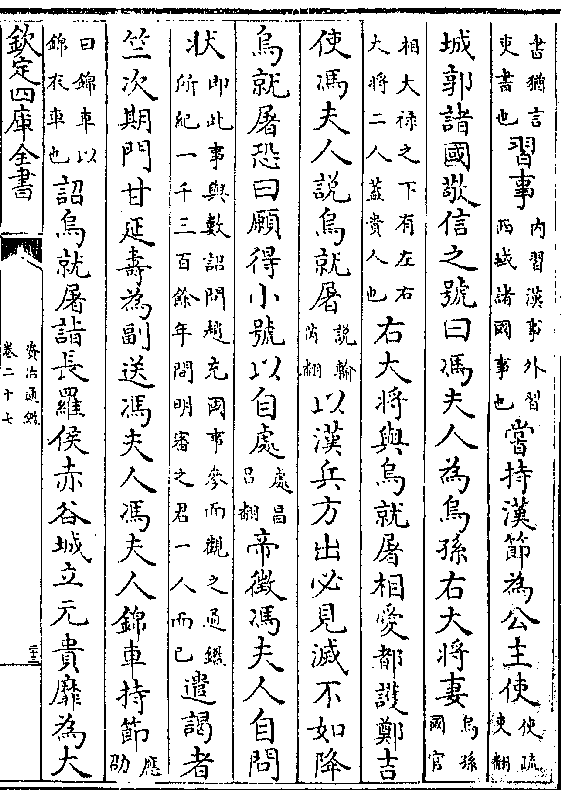 書猶言吏書也習事内習漢事外習西域諸國事也嘗持漢節為公主使使疏吏翻
城郭諸國敬信之號曰馮夫人為烏孫右大將妻烏孫國官
相大禄之下有左右大將二人葢貴人也右大將與烏就屠相愛都護鄭吉
使馮夫人説烏就屠説輸芮翻以漢兵方出必見滅不如降
烏就屠恐曰願得小號以自處處昌呂翻帝徴馮夫人自問
狀即此事與數詔問趙充國事參而觀之通鑑所紀一千三百餘年間明審之君一人而已遣謁者
竺次期門甘延壽為副送馮夫人馮夫人錦車持節應劭
曰錦車以錦衣車也詔烏就屠詣長羅侯赤谷城立元貴靡為大
欽定四庫全書
資治通鑑
卷二十七